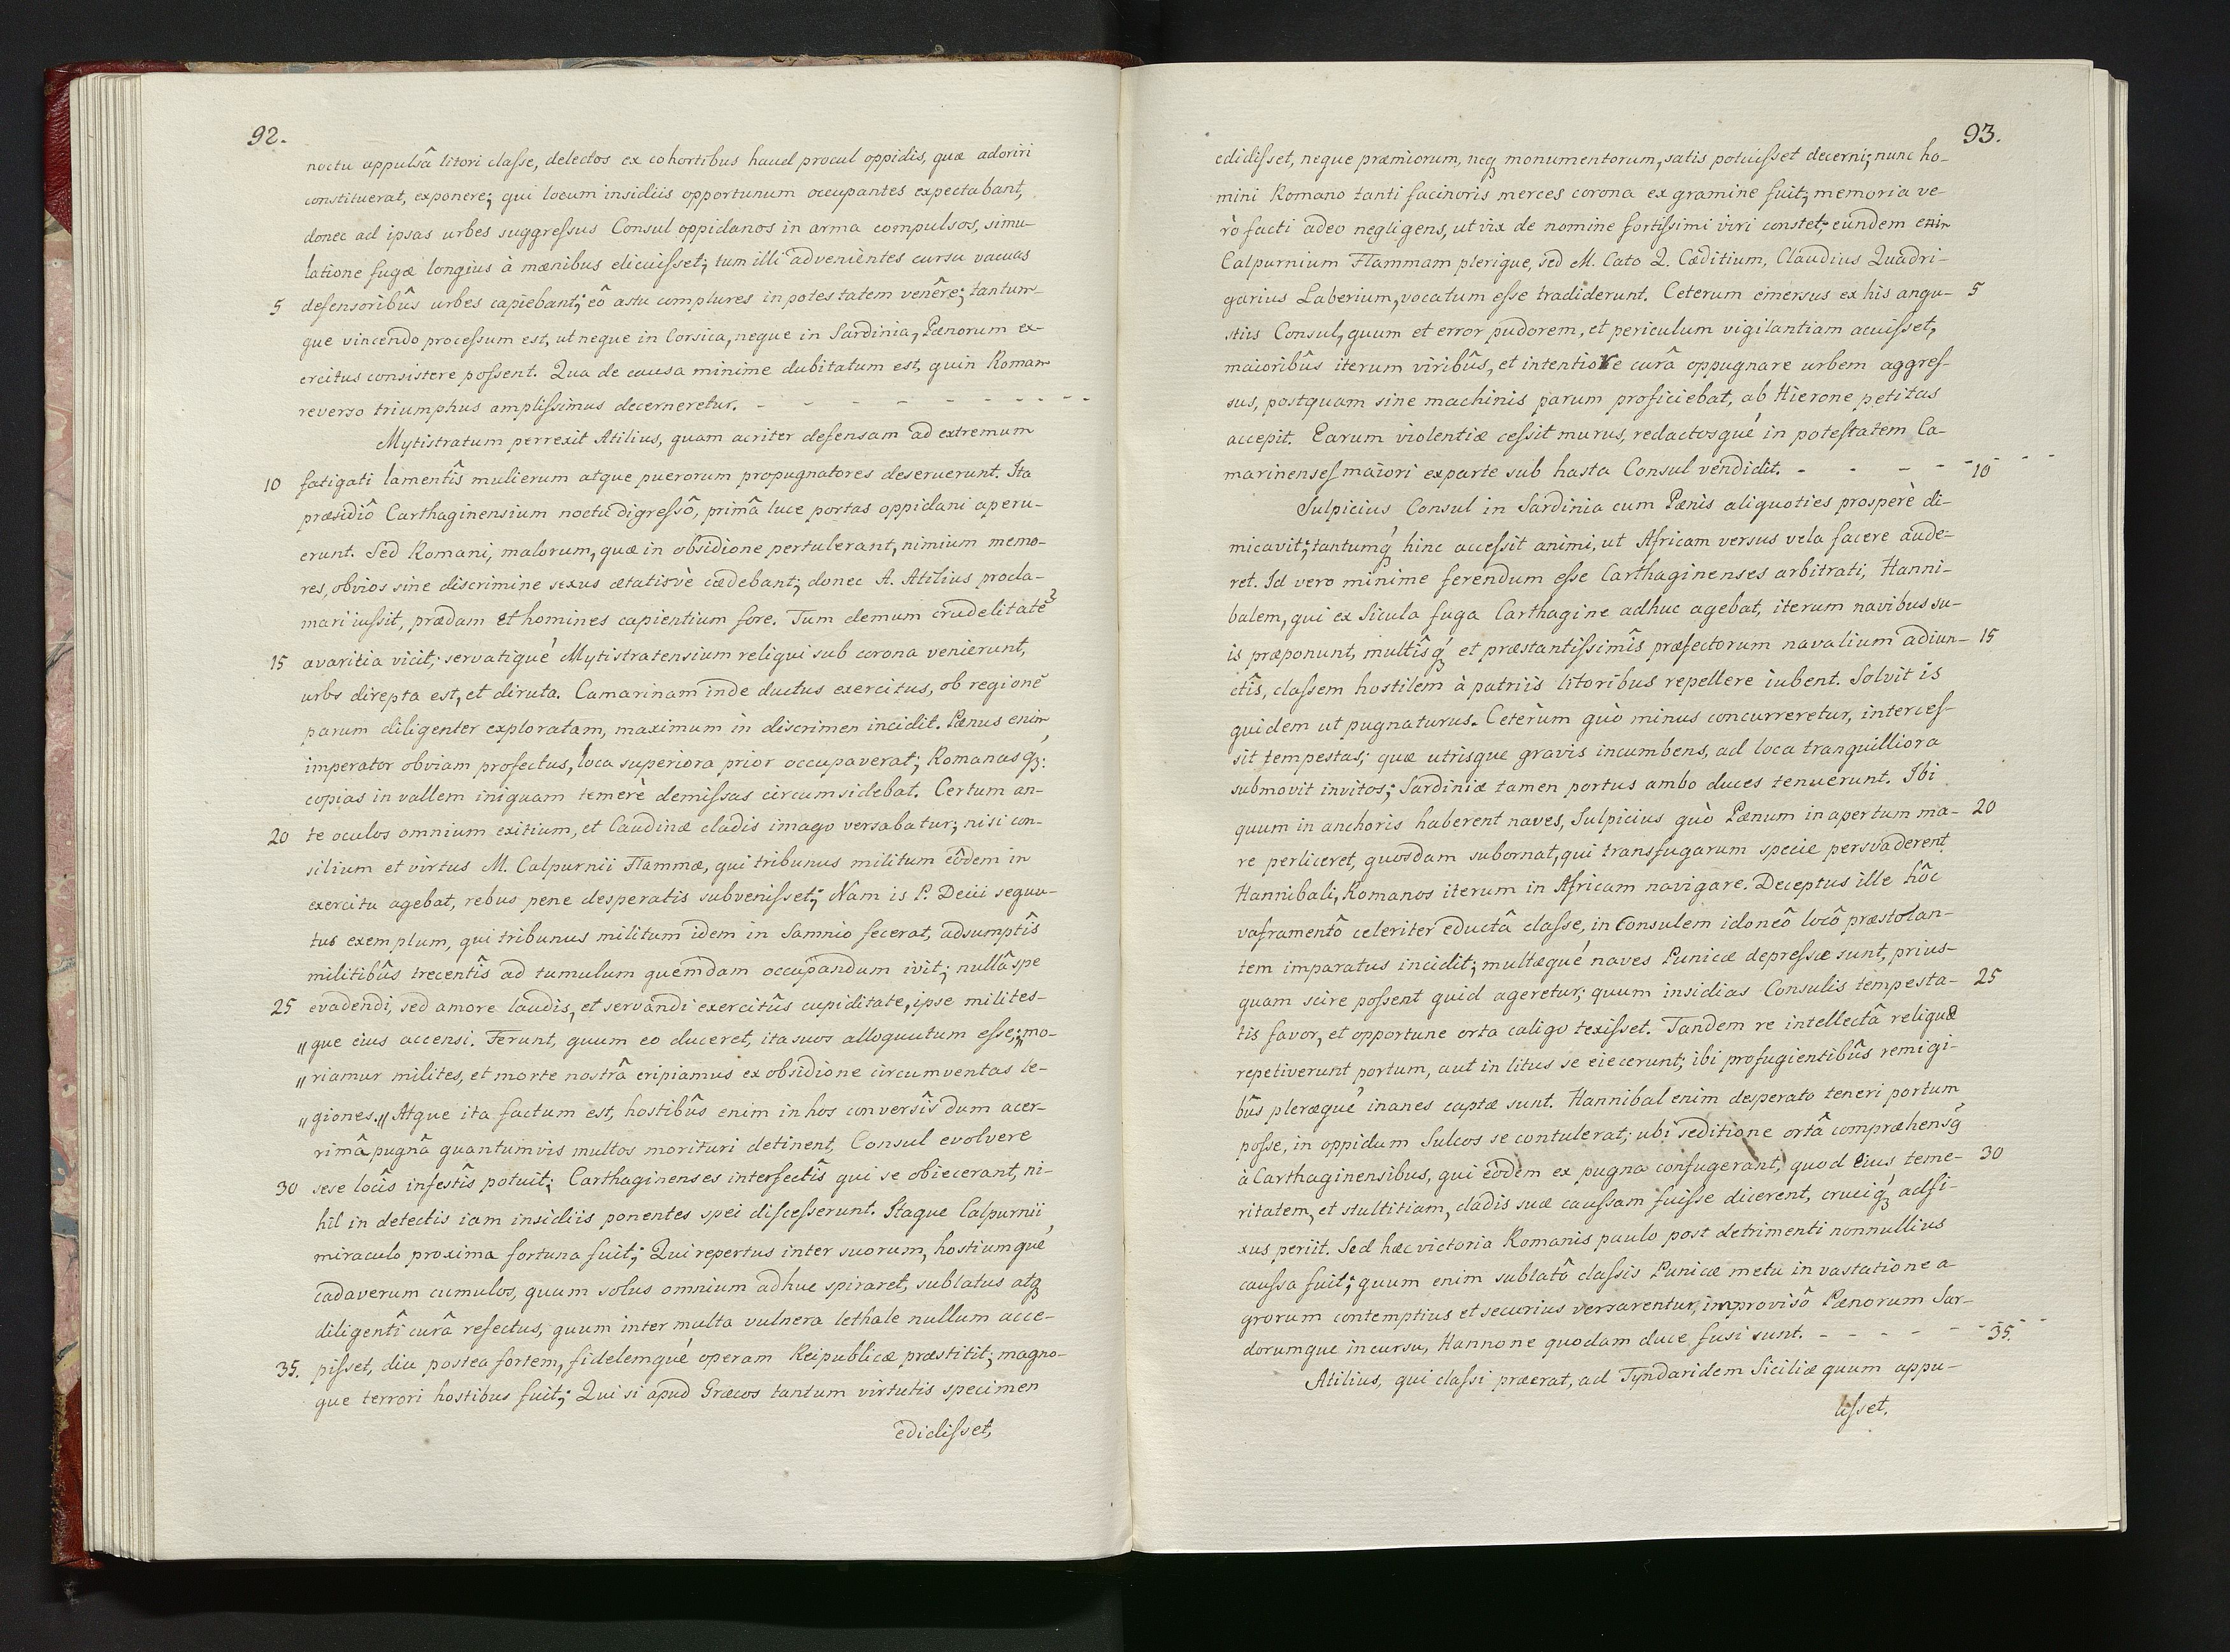 92.
noctu appulsâ litori classe, delectos ex cohortibus haud procul oppidis, quæ adoriri
constituerat, exponere; qui locum insidiis opportunum occupantes expectabant,
donec ad ipsas urbes suggressus Consul oppidanos in arma compulsos, simu-
latione fugæ longius à mænibus elicuisset; tum illi advenientes cursu vacuas
5 defensoribûs urbes capiebant; eô astu complures in potestatem venêre; tantum-
que vincendo processum est, ut neque in Corsica, neque in Sardinia, Pænorum ex-
ercitus consistere possent. Qua de causa minime dubitatum est, quin Romam
reverso triumphus amplissimus decerneretur. - - - - - - - - - -
Mytistratum perrexit Atilius, quam acriter defensam ad extremum
10 fatigati lamentîs mulierum atque puerorum propugnatores deseruerunt. Ita
præsidiô Carthaginensium noctu digressô, primâ luce portas oppidani aperu-
erunt. Sed Romani, malorum, quæ in obsidione pertulerant, nimium memo-
res, obvios sine discrimine sexus ætatisvè cædebant; donec A. Atilius procla-
mari iussit, prædam et homines capientium fore. Tum demum crudelitatē
15 avaritia vicit; servatiqué Mytistratensium reliqui sub corona venierunt,
urbs direpta est, et diruta. Camarinam inde ductus exercitus, ob regionē
parum diligenter exploratam, maximum in discrimen incidit. Pænus enim
imperator obviam profectus, loca superiora prior occupaverat; Romanasq́ꝫ:
copias in vallem iniquam temerè demissas circumsidebat. Certum an-
20 te oculos omnium exitium, et Caudinæ cladis imago versabatur; nisi con-
silium et virtus M. Calpurnii Flammæ, qui tribunus militum eôdem in
exercitu agebat, rebus pene desperatis subvenisset; Nam is P. Decii sequu-
tus exemplum, qui tribunus militum idem in Samnio fecerat, adsumptîs
militibûs trecentîs ad tumulum quemdam occupandum ivit; nullâ spe
25 evadendi, sed amore laudis, et servandi exercitûs cupiditate, ipse milites-
"que eius accensi. Ferunt, quum eo duceret, ita suos alloquutum esse; "mo-
"riamur milites, et morte nostrâ eripiamus ex obsidione circumventas le-
"giones." Atque ita factum est, hostibûs enim in hos conversîs dum acer-
rimâ pugnâ quantumvis multos morituri detinent, Consul evolvere
30 sese locîs infestîs potuit; Carthaginenses interfectîs qui se obiecerant, ni-
hil in detectis iam insidiis ponentes spei discesserunt. Itaque Calpurnii
miraculo proxima fortuna fuit; Qui repertus inter suorum, hostiumqué
cadaverum cumulos, quum solus omnium adhuc spiraret, sublatus atqꝫ
diligentî curâ refectus, quum inter multa vulnera lethale nullum acce-
35. pisset, diu postea fortem, fidelemqué operam Reipublicæ præstitit; magno-
que terrori hostibus fuit; Qui si apud Græcos tantum virtutis specimen
edidisset,
93.
edidisset, neque præmiorum, neqꝫ monumentorum, satis potuisset decerni; nunc ho-
mini Romano tanti facinoris merces corona ex gramine fuit; memoria ve-
rò facti adeo negligens, ut vix de nomine fortissimi viri constet; eundem enim
Calpurnium Flammam plerique, sed M. Cato Q. Cæditium, Claudius Quadri-
garius Laberium, vocatum esse tradiderunt. Ceterum emersus ex his angu- 5
stiis Consul, quum et error pudorem, et periculum vigilantiam acuisset,
maioribûs iterum viribûs, et intentiore curâ oppugnare urbem aggres-
sus, postquam sine machinis parum proficiebat, ab Hierone petitas
accepit. Earum violentiæ cessit murus, redactosqué in potestatem Ca-
marinenses maiori ex parte sub hasta Consul vendidit. - - - - - 10 - -
Sulpicius Consul in Sardinia cum Pænis aliquoties prosperè di-
micavit; tantumq́ꝫ hinc accessit animi, ut Africam versus vela facere aude-
ret. Id vero minime ferendum esse Carthaginenses arbitrati, Hanni-
balem, qui ex Sicula fuga Carthagine adhuc agebat, iterum navibus su-
is præponunt, multîsq́ꝫ et præstantissimîs præfectorum navalium adiun- 15
ctîs, classem hostilem à patriis litoribus repellere iubent. Solvit is
quidem ut pugnaturus. Ceterùm quò minus concurreretur, interces-
sit tempestas; quæ utrisque gravis incumbens, ad loca tranquilliora
submovit invitos; Sardiniæ tamen portus ambo duces tenuerunt. Ibi
quum in anchoris haberent naves, Sulpicius quò Pænum in apertum ma- 20
re perliceret, quosdam subornat, qui transfugarum specie persvaderent
Hannibali, Romanos iterum in Africam navigare. Deceptus ille hôc
vaframentô celeriter eductâ classe, in Consulem idoneô locô præstolan-
tem imparatus incidit; multæqué naves Punicæ depressæ sunt, prius-
quam scire possent quid ageretur; quum insidias Consulis tempesta- 25
tis favor, et opportune orta caligo texisset. Tandem re intellectâ reliquæ
repetiverunt portum, aut in litus se eiecerunt; ibi profugientibûs remigi-
bûs pleræqué inanes captæ sunt. Hannibal enim desperato teneri portum
posse, in oppidum Sulcos se contulerat; ubi seditione ortâ compræhensꝯ
à Carthaginensibus, qui eôdem ex pugna confugerant, quod eius teme- 30
ritatem, et stultitiam, cladis suæ caussam fuisse dicerent, cruciq́ꝫ adfi-
xus periit. Sed hæc victoria Romanis paulo post detrimenti nonnullius
caussa fuit; quum enim sublatô classis Punicæ metu in vastatione a-
grorum contemptius et securius versarentur, improvisô Pænorum Sar-
dorumque incursu, Hannone quodam duce fusi sunt. - - - - - - 35. - -
Atilius, qui classi præerat, ad Tyndaridem Siciliæ quum appu-
lisset.